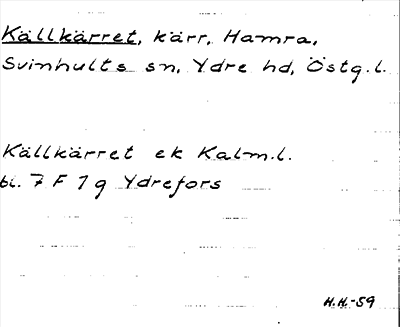 Källkärret, kärr, Hamra,
Svinhults sn, Ydre hd, Östg.l.
Källkärret ek Kalm.l.
bl. 7 F 1 g Ydrefors
H.H.-59